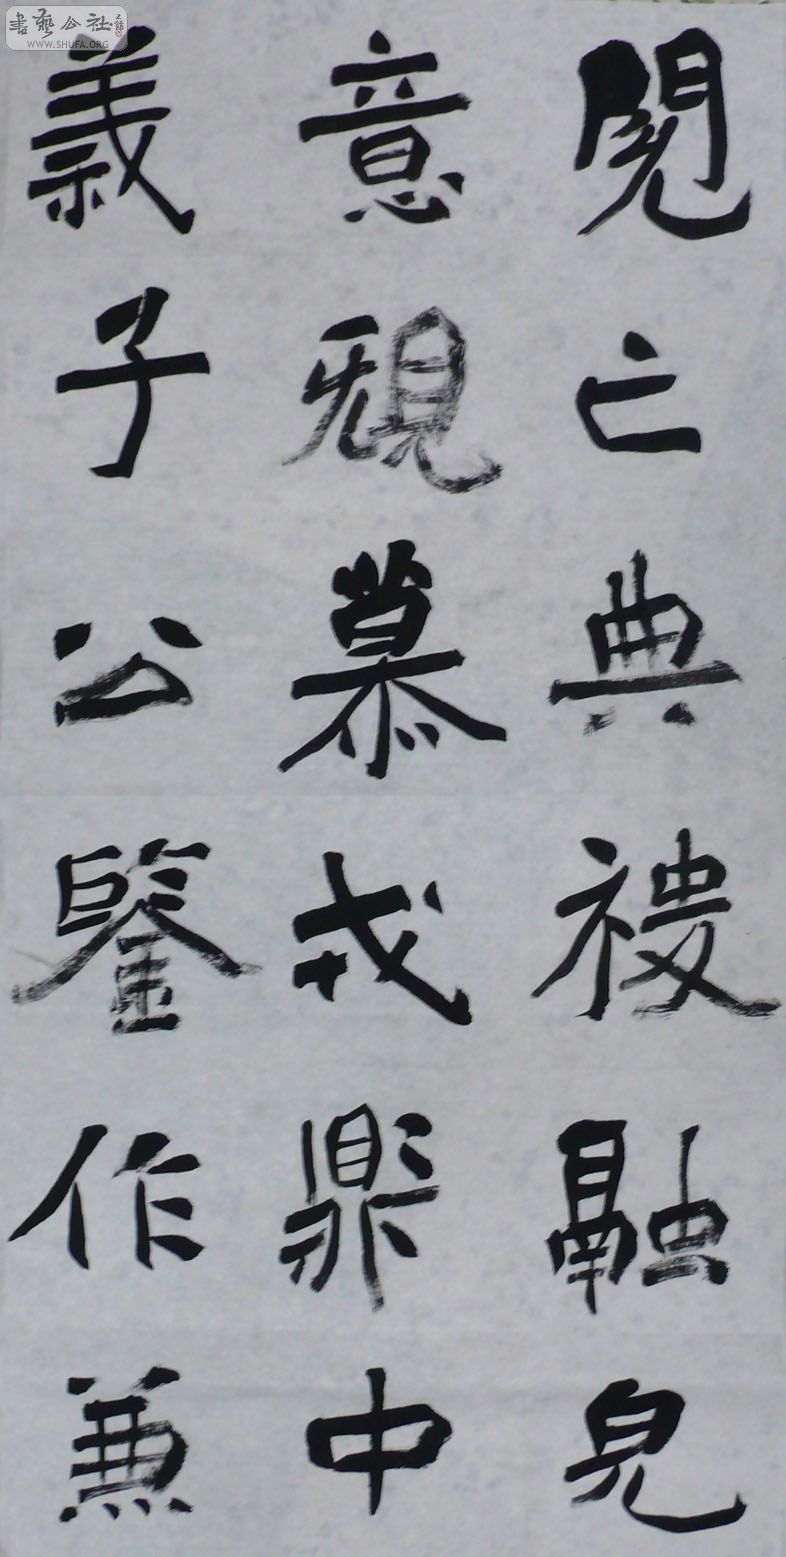 閱亡典被融皃
意覛慕戎鼎中
義子公鑒作兼
書藝公社
WWW.SHUFA.ORG